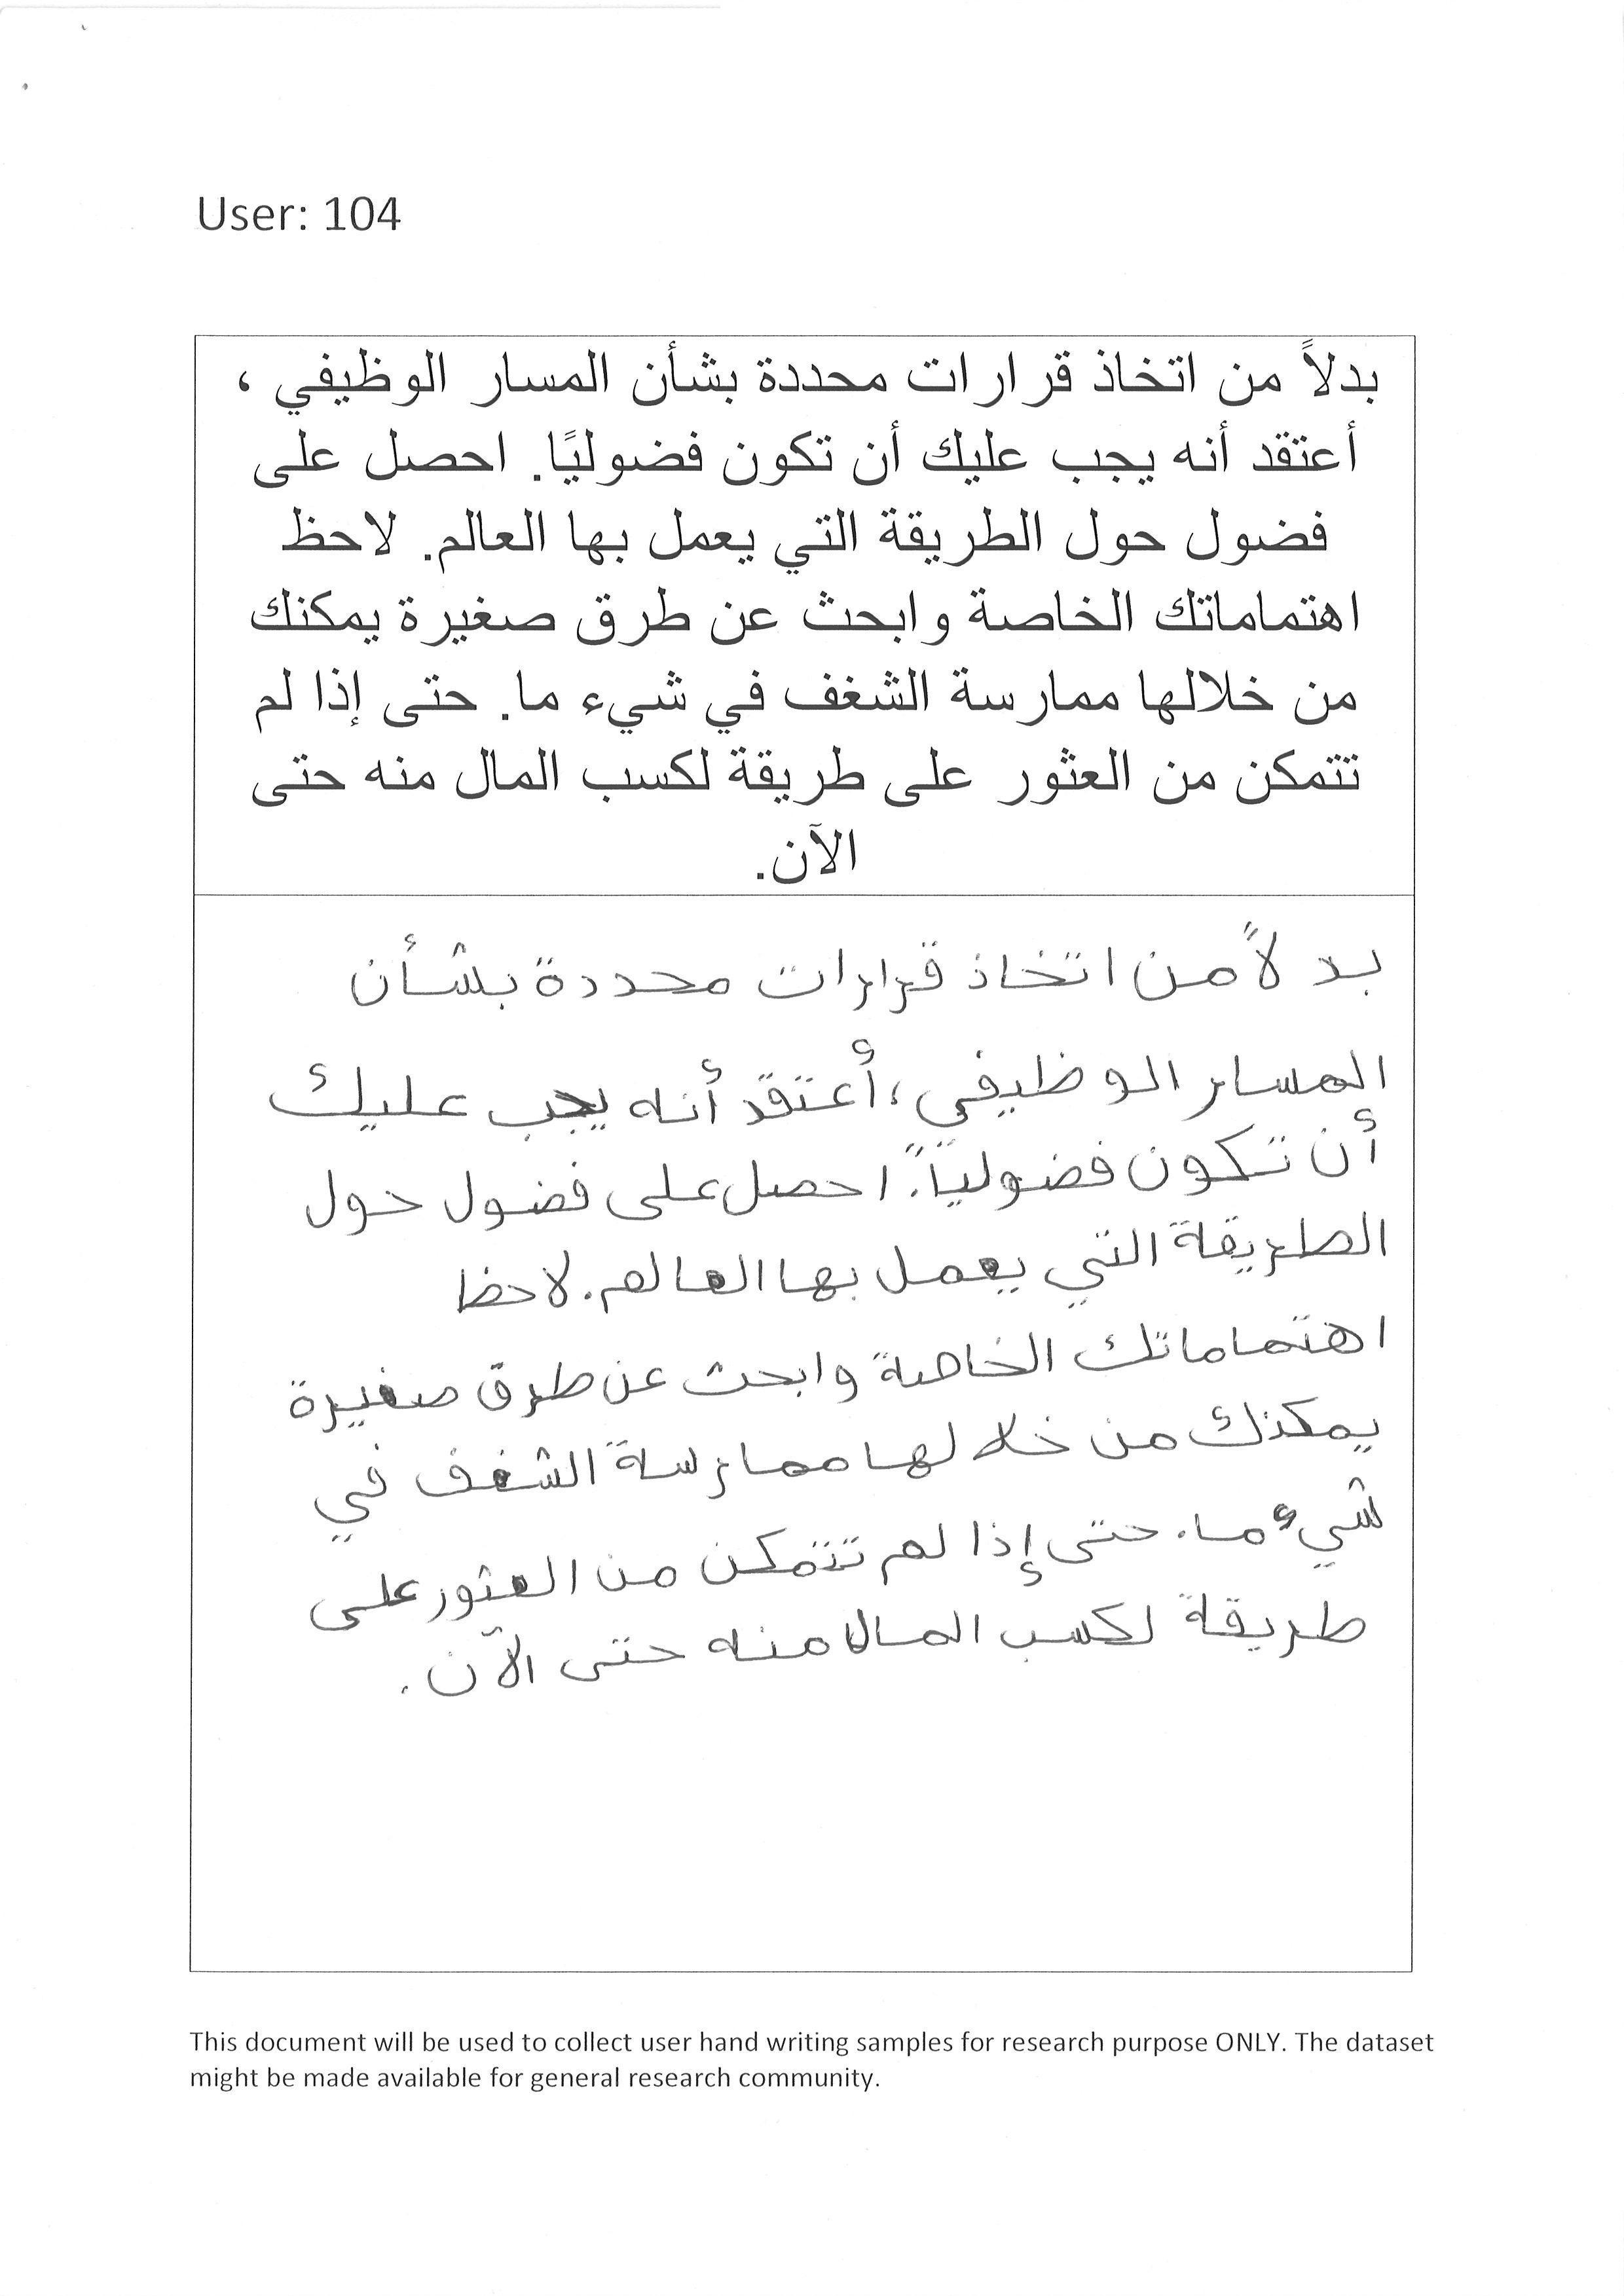 User: 104
بدلاً من اتخاذ قرارات محددة بشأن المسار الوظيفي ،
أعتقد أنه يجب عليك أن تكون فضوليًا. احصل على
فضول حول الطريقة التي يعمل بها العالم. لاحظ
اهتماماتك الخاصة وابحث عن طرق صغيرة يمكنك
من خلالها ممارسة الشغف في شيء ما. حتى إذا لم
تتمكن من العثور على طريقة لكسب المال منه حتى
الآن.
بدلاً من اتخاذ قرارات محددة بشأن
المسار الوظيفي ، أعتقد أنه يجب عليك
أن تكون فضولياً. احصل على فضول حول
الطريقة التي يعمل بها العالم. لاحظ
اهتماماتك الخاصة وابحث عن طرق صغيرة
يمكنك من خلالها ممارسة الشغف في
شيء ما. حتى إذا لم تتمكن من العثور على
طريقة لكسب المال منه حتى الآن.
This document will be used to collect user hand writing samples for research purpose ONLY. The dataset
might be made available for general research community.